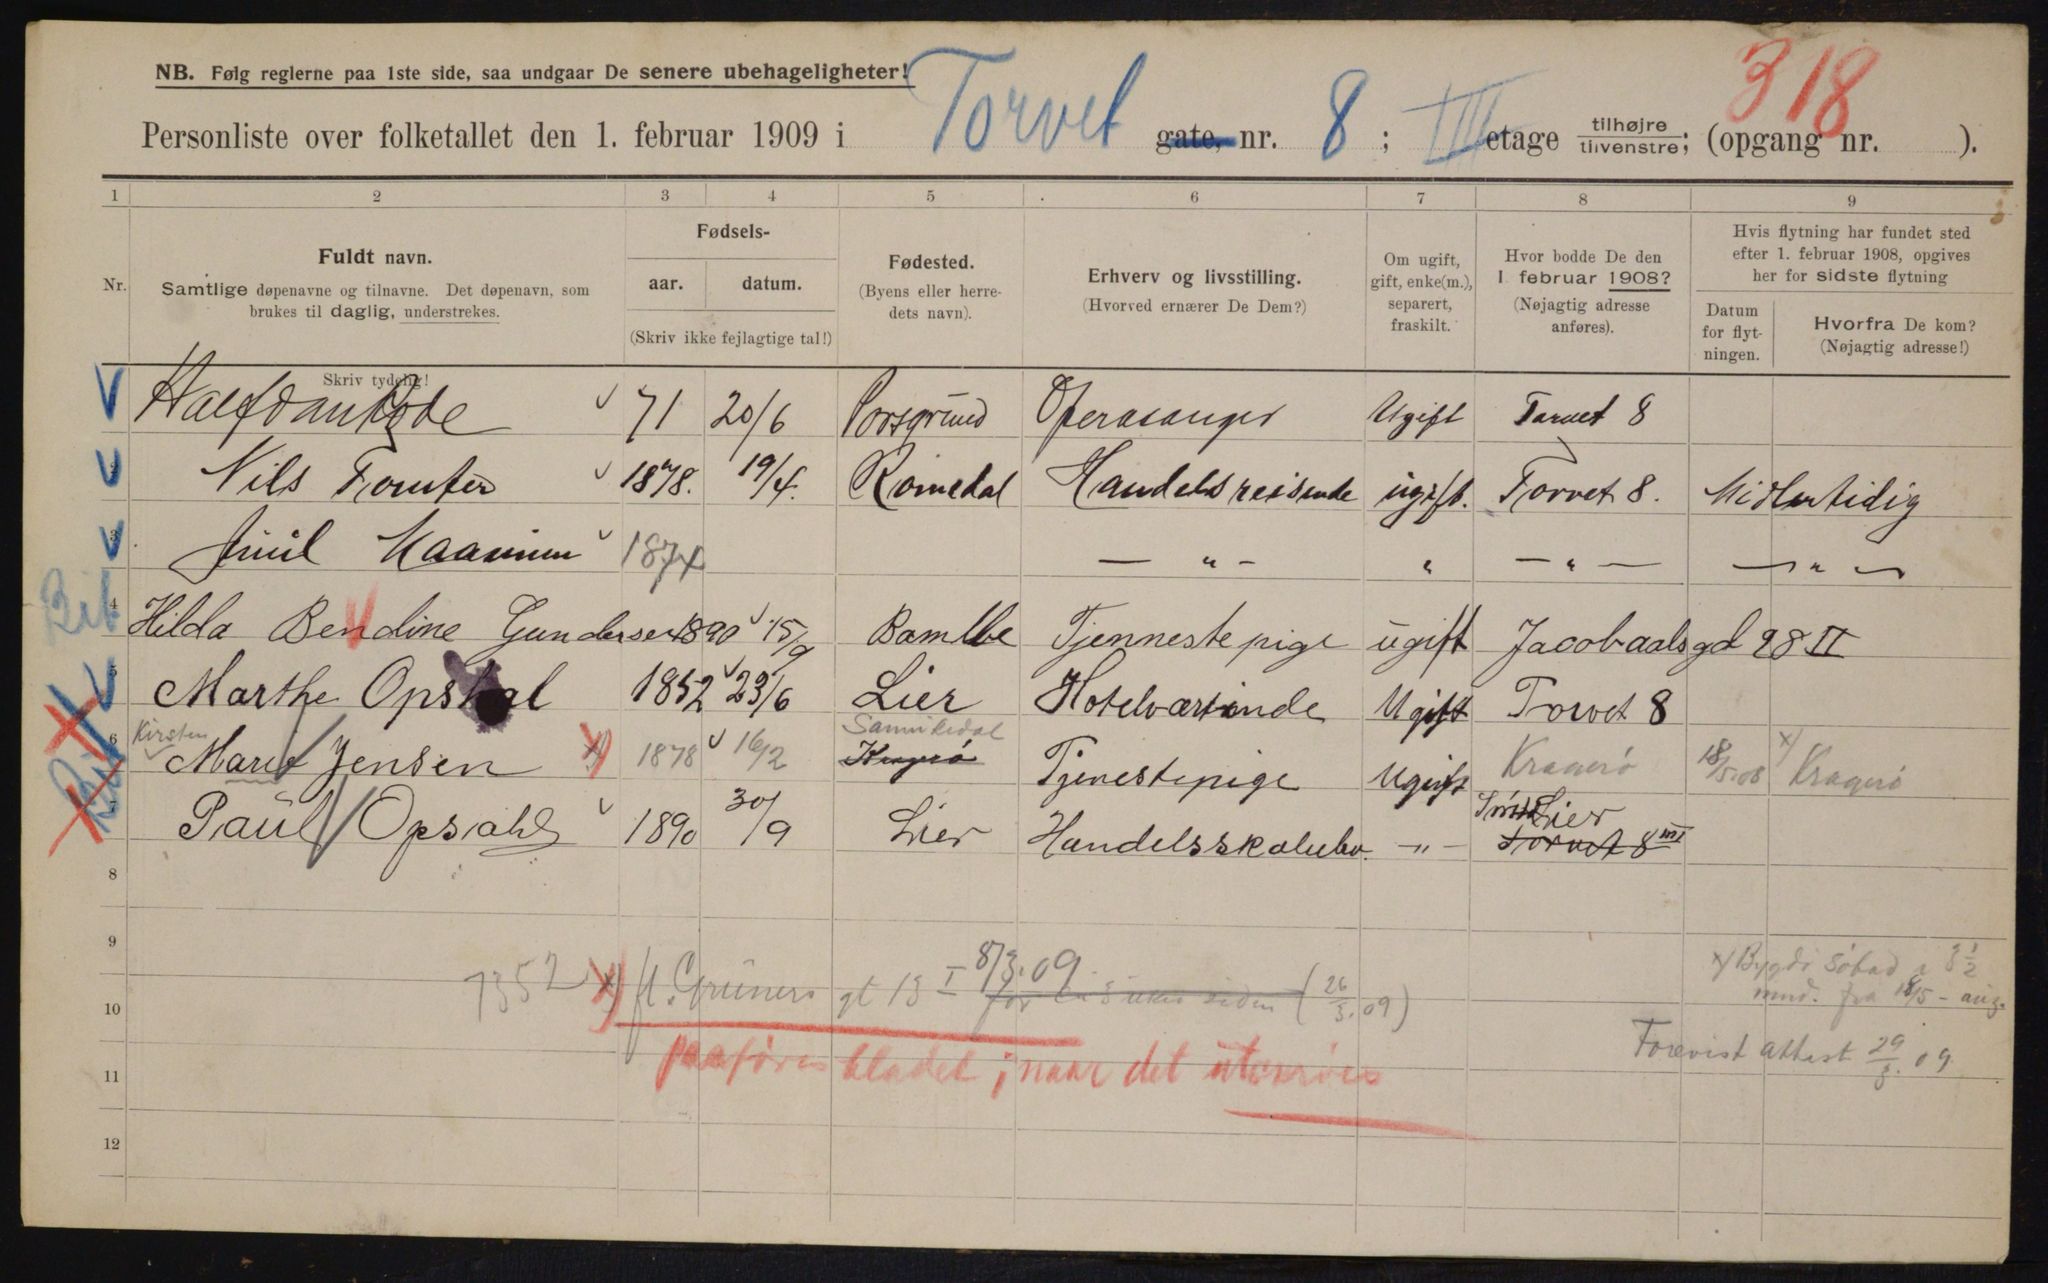 318
NB. Følg reglerne paa 1ste side, saa undgaar De senere ubehageligheter!
Personliste over folketallet den 1. februar 1909 i Torvet gate, nr. 8 ; III etage tilhøjre tilvenstre; (opgang nr. ).
1 2 3 4 5 6 7 8 9
Nr.
Fuldt navn.
Samtlige døpenavne og tilnavne. Det døpenavn, som
brukes til daglig, understrekes.
Skriv tydelig!
Fødsels-
aar. datum.
(Skriv ikke fejlagtige tal!)
Fødested.
(Byens eller herre-
dets navn).
Erhverv og livsstilling.
(Hvorved ernærer De Dem?)
Om ugift,
gift, enke(m.),
separert,
fraskilt.
Hvor bodde De den
1. februar 1908?
(Nøjagtig adresse
anføres).
Hvis flytning har fundet sted
efter 1. februar 1908, opgives
her for sidste flytning
Datum
for flyt-
ningen.
Hvorfra De kom?
(Nøjagtig adresse!)
Halfdan Rode 71 20/6 Porsgrund Operasanger Ugift Torvet 8
Nils 1878. 19/4. Romedal Handelsreisende ugift. Torvet 8. Midlertidig
3 1874 — " — " — " — — " —
4 Hilda Bendine Gundersen 1890 15/9 Bamble Tjennestepige ugift Jacobaalsgd 28 II
5 Marthe Opsahl 1852 23/6 Lier Hotelværtinde Ugift Torvet 8
Kirsten Sannikedal
6 Marie Jensen x) 1878 16/2 Kragerø Tjenestepige Ugift Kragerø 18/5.08 x) Kragerø
7 Paul Opsahl 1890 30/9 Lier — " — Lier
Torvet 8 III
8
9
8/3.09
x) fl. Grüners gt 13 I (26/3.09)
x) Bygdø Søbad i 3 1/2
mnd. fra 18/5 - aug.
10
Forevist attest 29/3.09
paaføres bladet, naar det
11
12